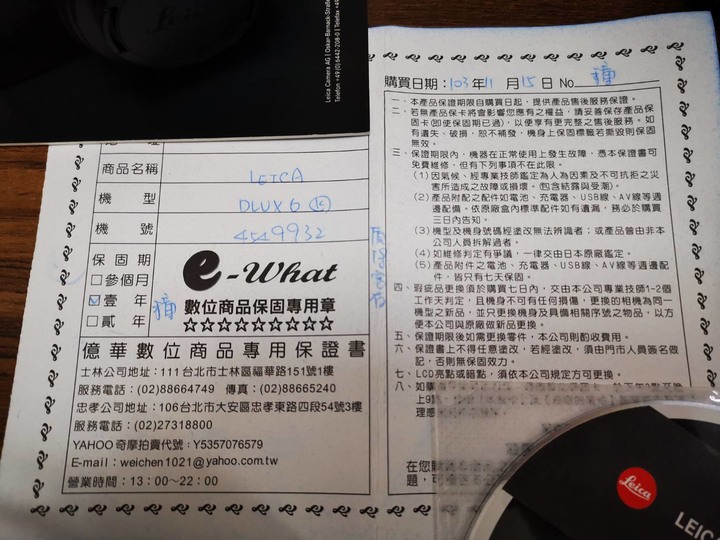 Leica
Leica Camera AG | Oskar-Barnack-Straße
Telefon +49 (0) 6442-208-0 | Telefax +49
商品名稱 LEICA
機 型 DLUX6
機 號 4549932
保固期
□參個月
☑壹 年
□貳 年
e-What
數位商品保固專用章
☆☆☆☆☆☆☆☆☆
億華數位商品專用保證書
士林公司地址：111台北市士林區福華路151號1樓
服務電話：(02)88664749 傳真：(02)88665240
忠孝公司地址：106台北市大安區忠孝東路四段54號3樓
服務電話：(02)27318800
YAHOO奇摩拍賣代號：Y5357076579
E-mail：weichen1021@yahoo.com.tw
營業時間：13：00～22：00
購買日期：103年11月15日 No
一、本產品保證期限自購買日起，提供產品售後服務保證。
二、若無產品保卡將會影響您應有之權益，請妥善保存產品保
固卡(即使保固期已過)，以便享有更完整之售後服務。如
有遺失、破損，恕不補發，機身上保固標籤若撕毀則保固
無效。
三、保證期限內，機器在正常使用上發生故障，憑本保證書可
免費維修，但有下列事項不在此限。
(1)因氣候、經專業技師鑑定為人為因素及不可抗拒之災
害所造成之故障或損壞。(包含結露與受潮)。
(2)產品附配之配件如電池、充電器、USB線、AV線等週
邊配備，依原廠盒內標準配件如有遺漏，務必於購買
三日內告知。
(3)機型及機身號碼經塗改無法辨識者；或產品曾由非本
公司人員拆解過者。
(4)如維修判定有爭議，一律交由日本原廠鑑定。
(5)產品附件之電池、充電器、USB線、AV線等週邊配
件，皆只有七天保固。
四、瑕疵品更換須於購買七日內，交由本公司專業技師1-2個
工作天判定，且機身不可有任何損傷，更換的相機為同一
機型之新品，並只更換機身及具備相關序號之物品，以方
便本公司與原廠做新品更換。
五、保證期限後如需更換零件，本公司則酌收費用。
六、保證書上不得任意塗改，若經塗改，須由門市人員簽名做
記，否則無保固效力。
七、LCD亮點或暗點，須依本公司規定方可更換。
八、如購
上9
理感
在您購
題，可
Leica
LEIC